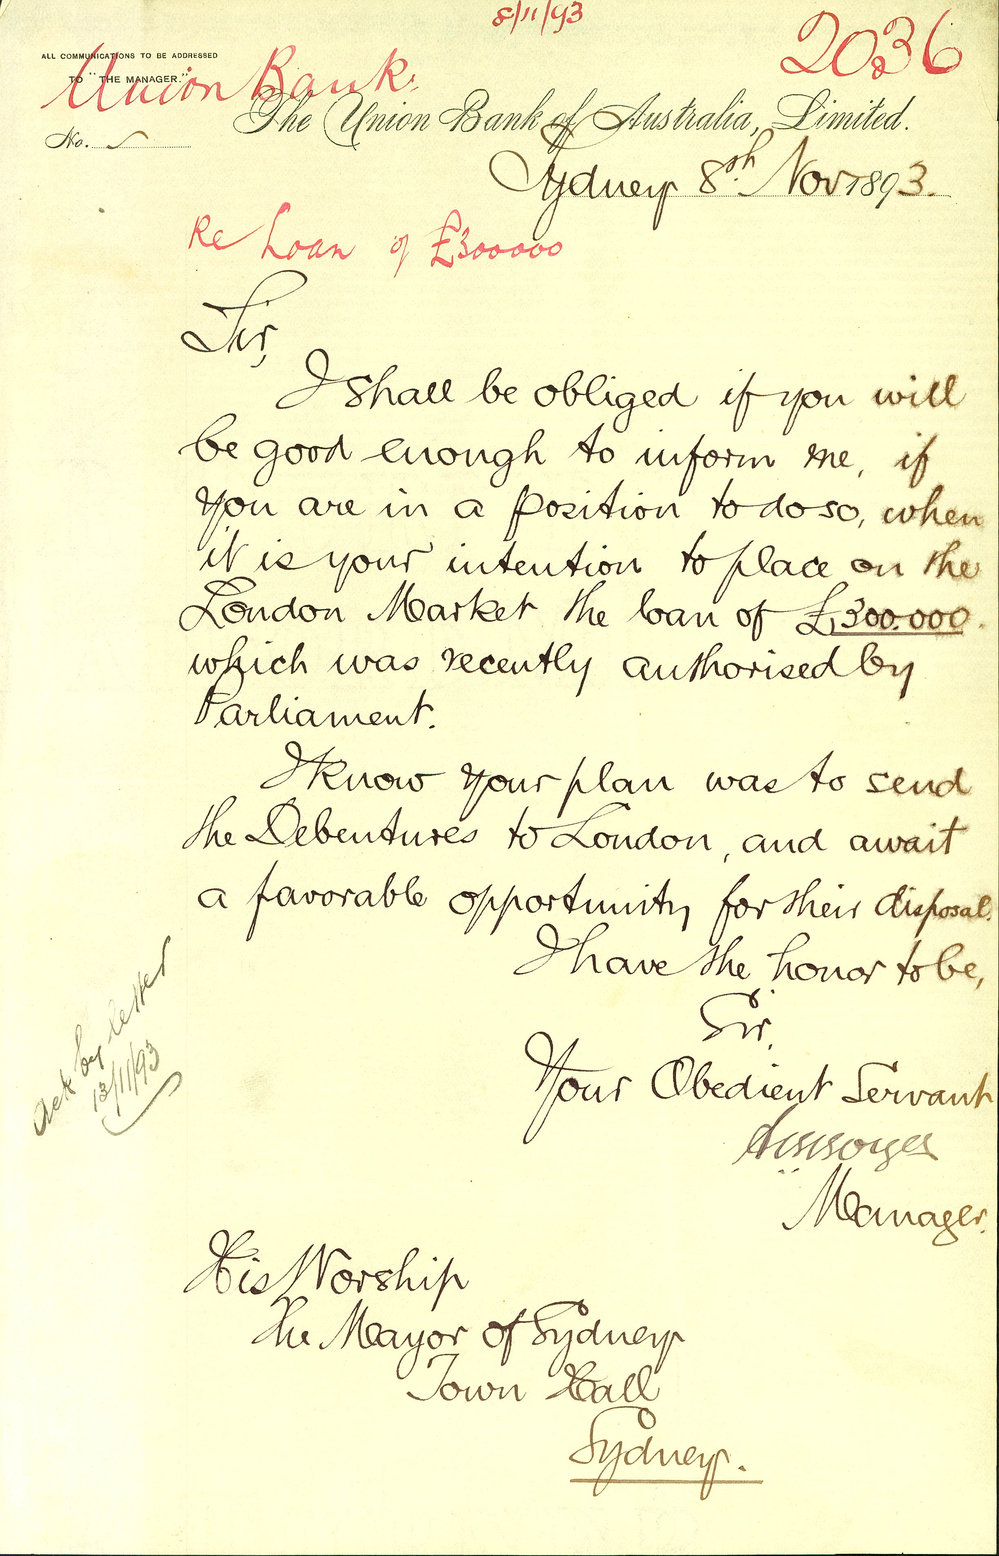 8/11/93
2036
ALL COMMUNICATIONS TO BE ADDRESSED
TO "THE MANAGER."
Union Bank.
The Union Bank of Australia, Limited.
No.
Sydney 8th Nov 1893.
Re Loan of £300000
Sir,
I shall be obliged if you will
be good enough to inform me, if
you are in a position to do so, when
it is your intention to place on the
London Market the loan of £300.000.
which was recently authorised by
Parliament.
I know your plan was to send
the Debentures to London, and await
a favorable opportunity for their disposal.
I have the honor to be,
Sir,
Your Obedient Servant
Manager.
Ack by letter
13/11/93
His Worship
The Mayor of Sydney
Town Hall
Sydney.